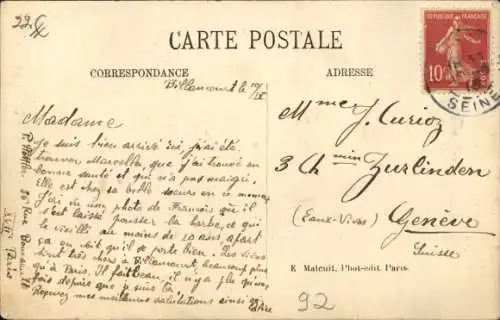 22.
CARTE POSTALE
CORRESPONDANCE
ADRESSE
REPUBLIQUE FRANÇAISE
10c
SEINE
Billancourt le 10/IX
Madame
Je suis bien arrivé ici, j'ai été
trouver Marcelle, que j'ai trouvé en
bonne santé et qui n'a pas maigri.
Elle est chez sa belle soeur en ce moment
J'ai vu une photo de François qui
s'est laissé pousser la barbe, ce qui
le vieilli au moins de 10 ans, apart
ça on voit qu'il se porte bien. Les vins
sont très chers à Billancourt, beaucoup plus
qu'à Paris. Il fait beau, il n'a plu qu'une
fois depuis que je suis là.
Recevez mes meilleures salutations ainsi
36 Rue
Paris
Mme J. Curioz
3 Ch min Zurlinden
(Eaux-Vives) Genève
Suisse
E Malcuit, Phot-edit. Paris.
92